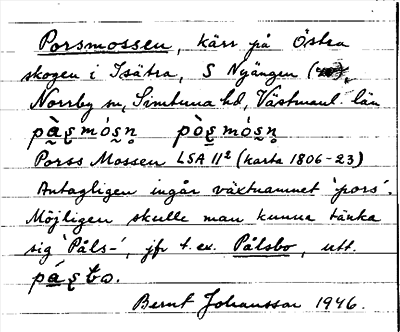 Porsmossen, kärr på Östra
skogen i Isätra, S Nyängen (
Norrby sn, Simtuna hd, Västmanl. län
pà̰ʂmós̰n̥ pòʂmós̰n̥
Porss Mossen LSA 11² (karta 1806-23)
Antagligen ingår växtnamnet 'pors'.
Möjligen skulle man kunna tänka
sig 'Påls-', jfr t.ex. Pålsbo, utt.
páʂbo.
Bernt Johansson 1946.